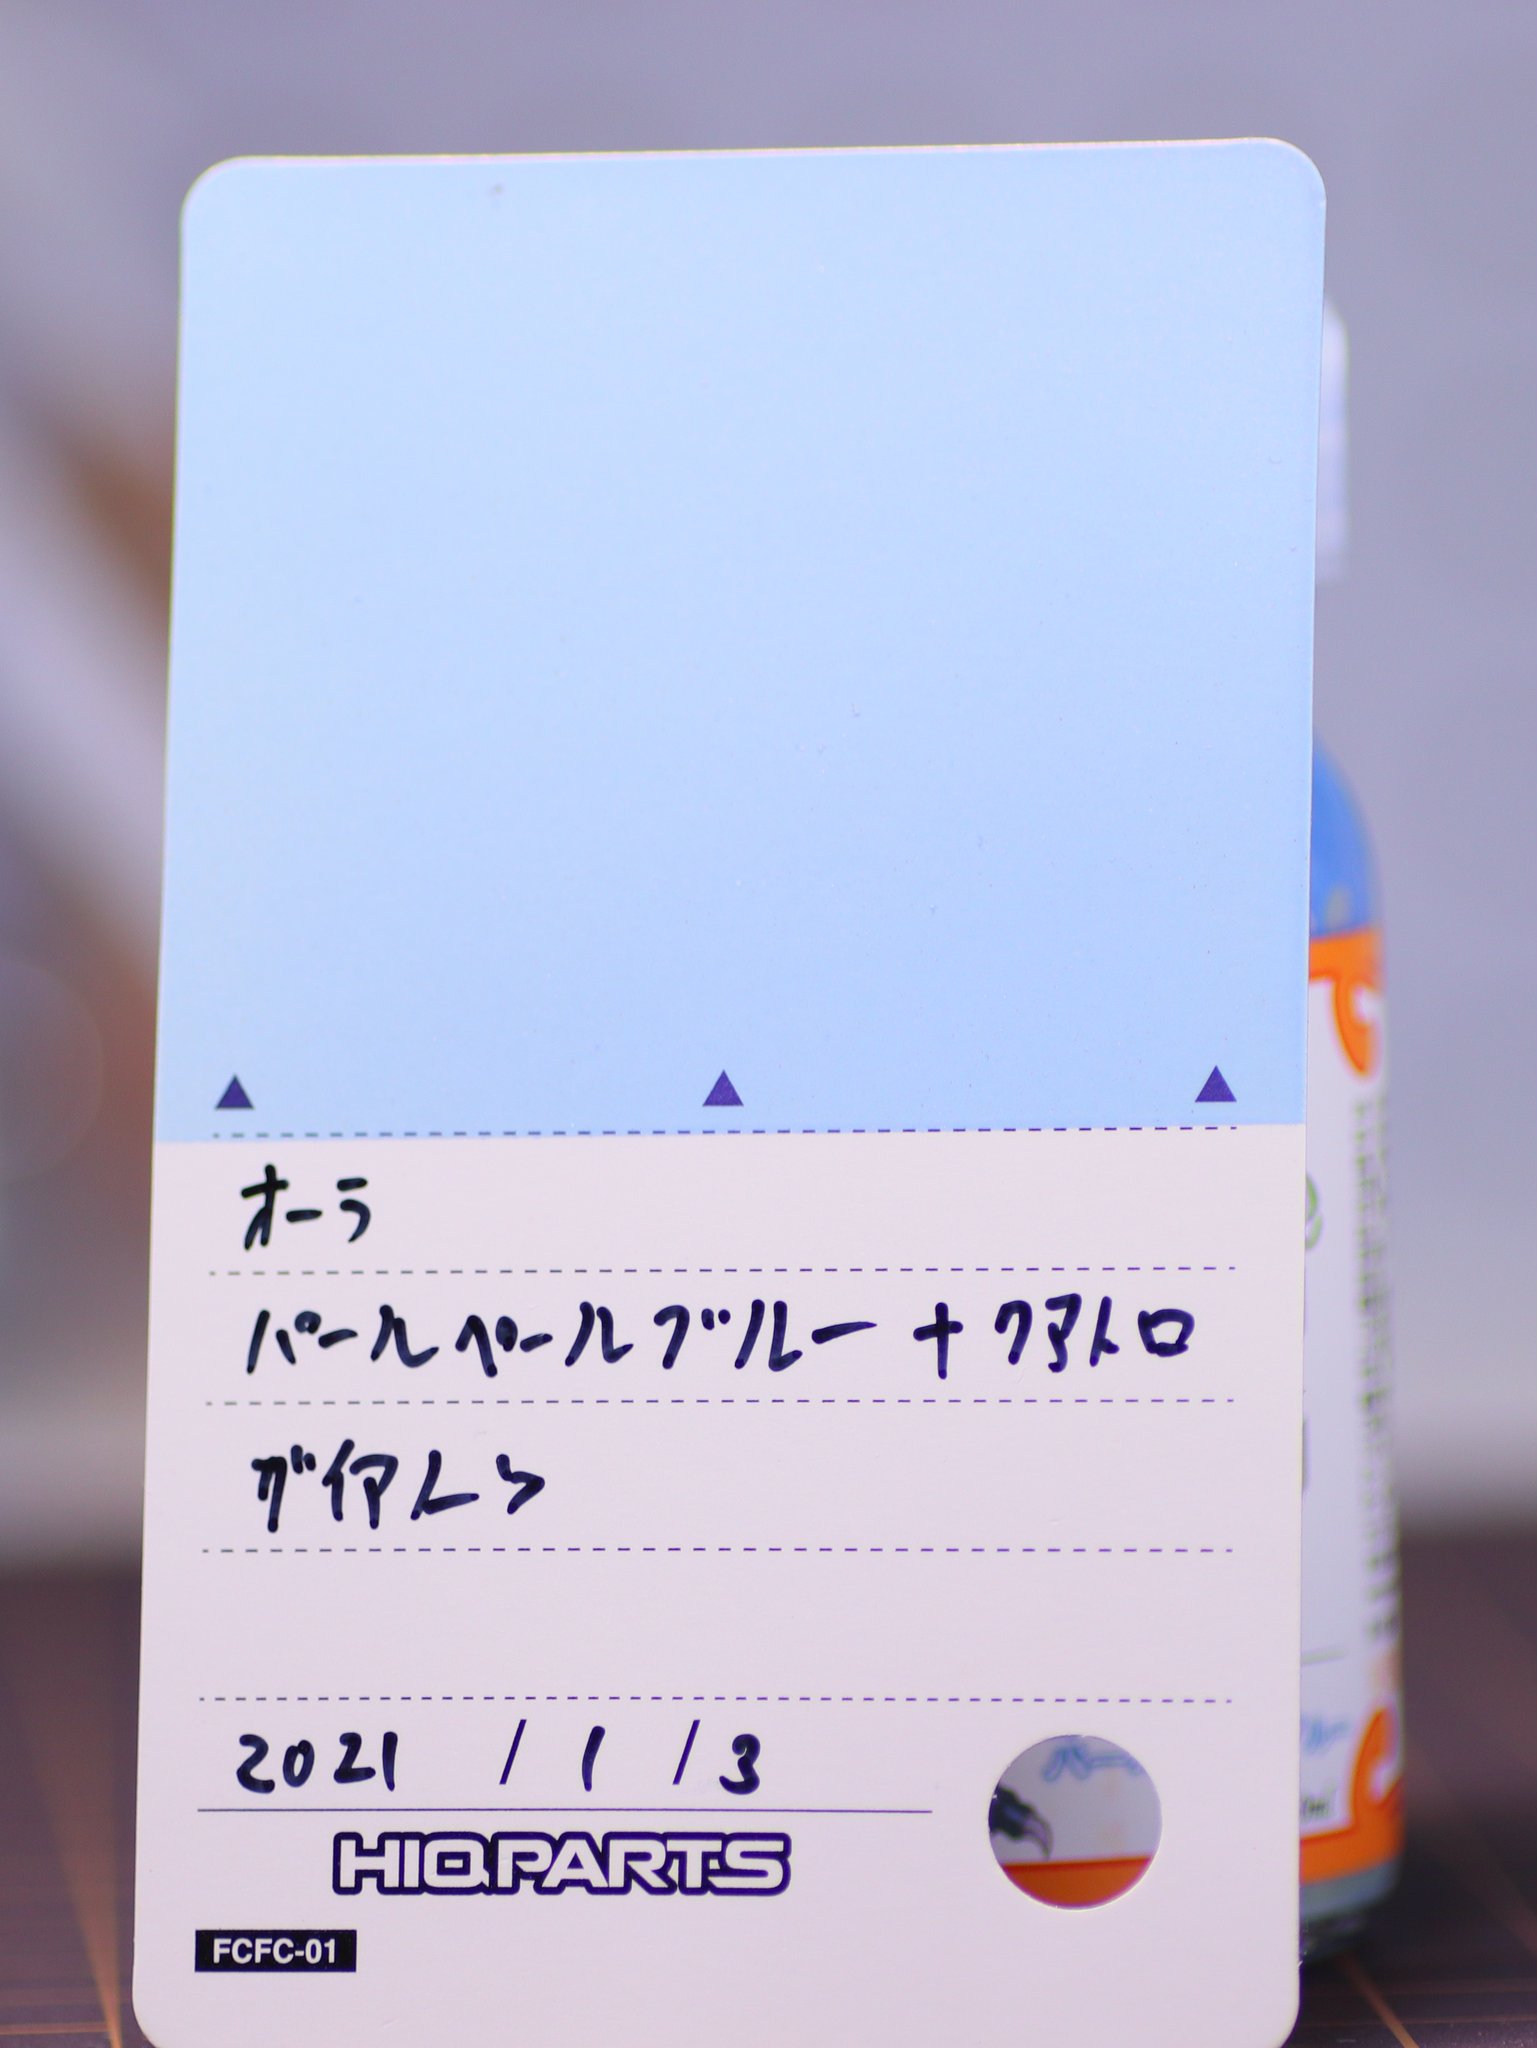 オーラ
パールペールブルー + クアトロ
ガイアノーツ
2021 / 1 / 3
HIQPARTS
FCFC-01